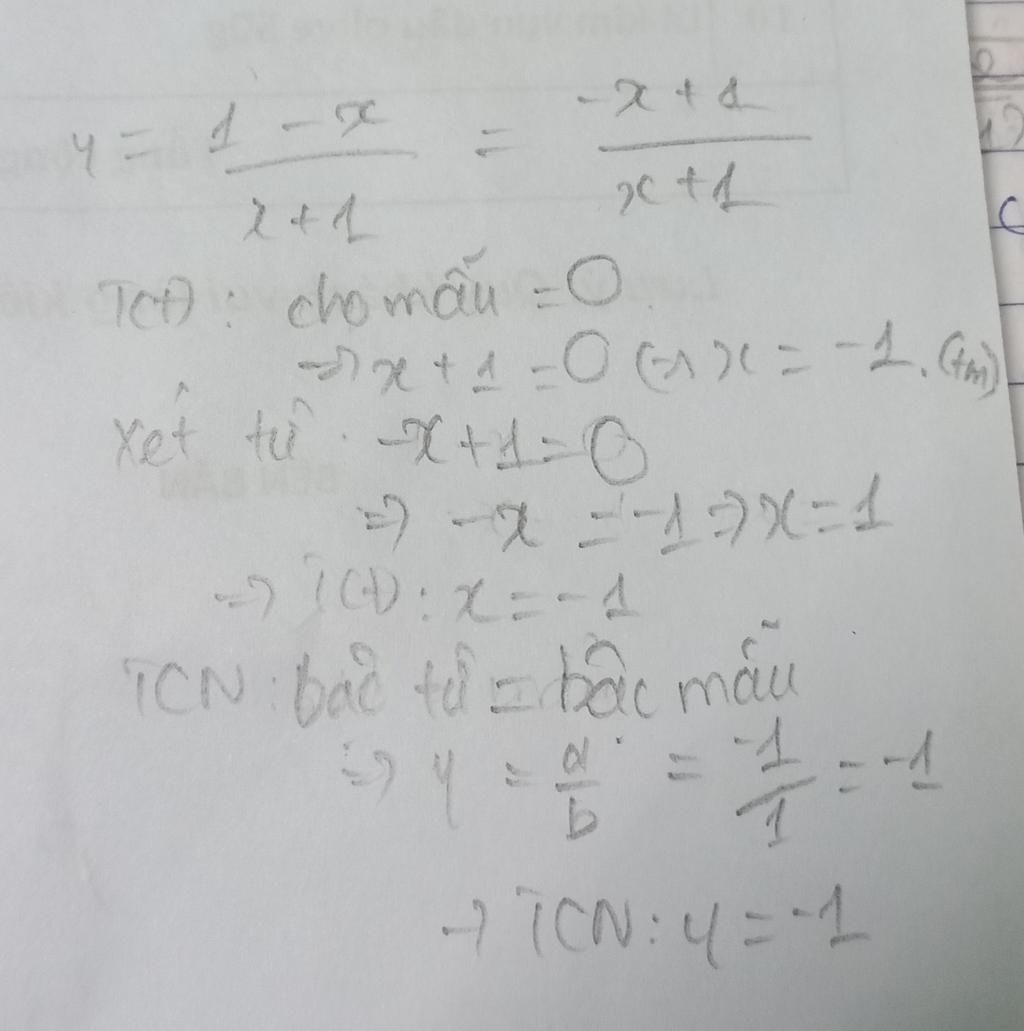 y = 1 - x / x + 1 = -x + 1 / x + 1
TCĐ: cho mẫu = 0
=> x + 1 = 0 (=> x = -1. (tm)
Xét tử -x + 1 = 0
=> -x = -1 => x = 1
=> TCĐ: x = -1
TCN: bậc tử = bậc mẫu
=> y = a / b = -1 / 1 = -1
-> TCN: y = -1